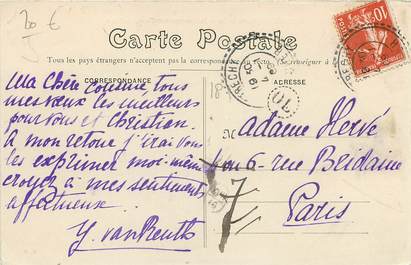 20 €
Carte Postale
Tous les pays étrangers n'acceptent pas la correspondance au recto. (Se renseigner à
CORRESPONDANCE
Ma Chère Cousine, tous
mes vœux les meilleurs
pour vous et Christian.
A mon retour j'irai vous
les exprimer moi-même
croyez à mes sentiments
affectueux.
Y. van
M
adame Hervé
6 rue Bridaine
Paris
7
10